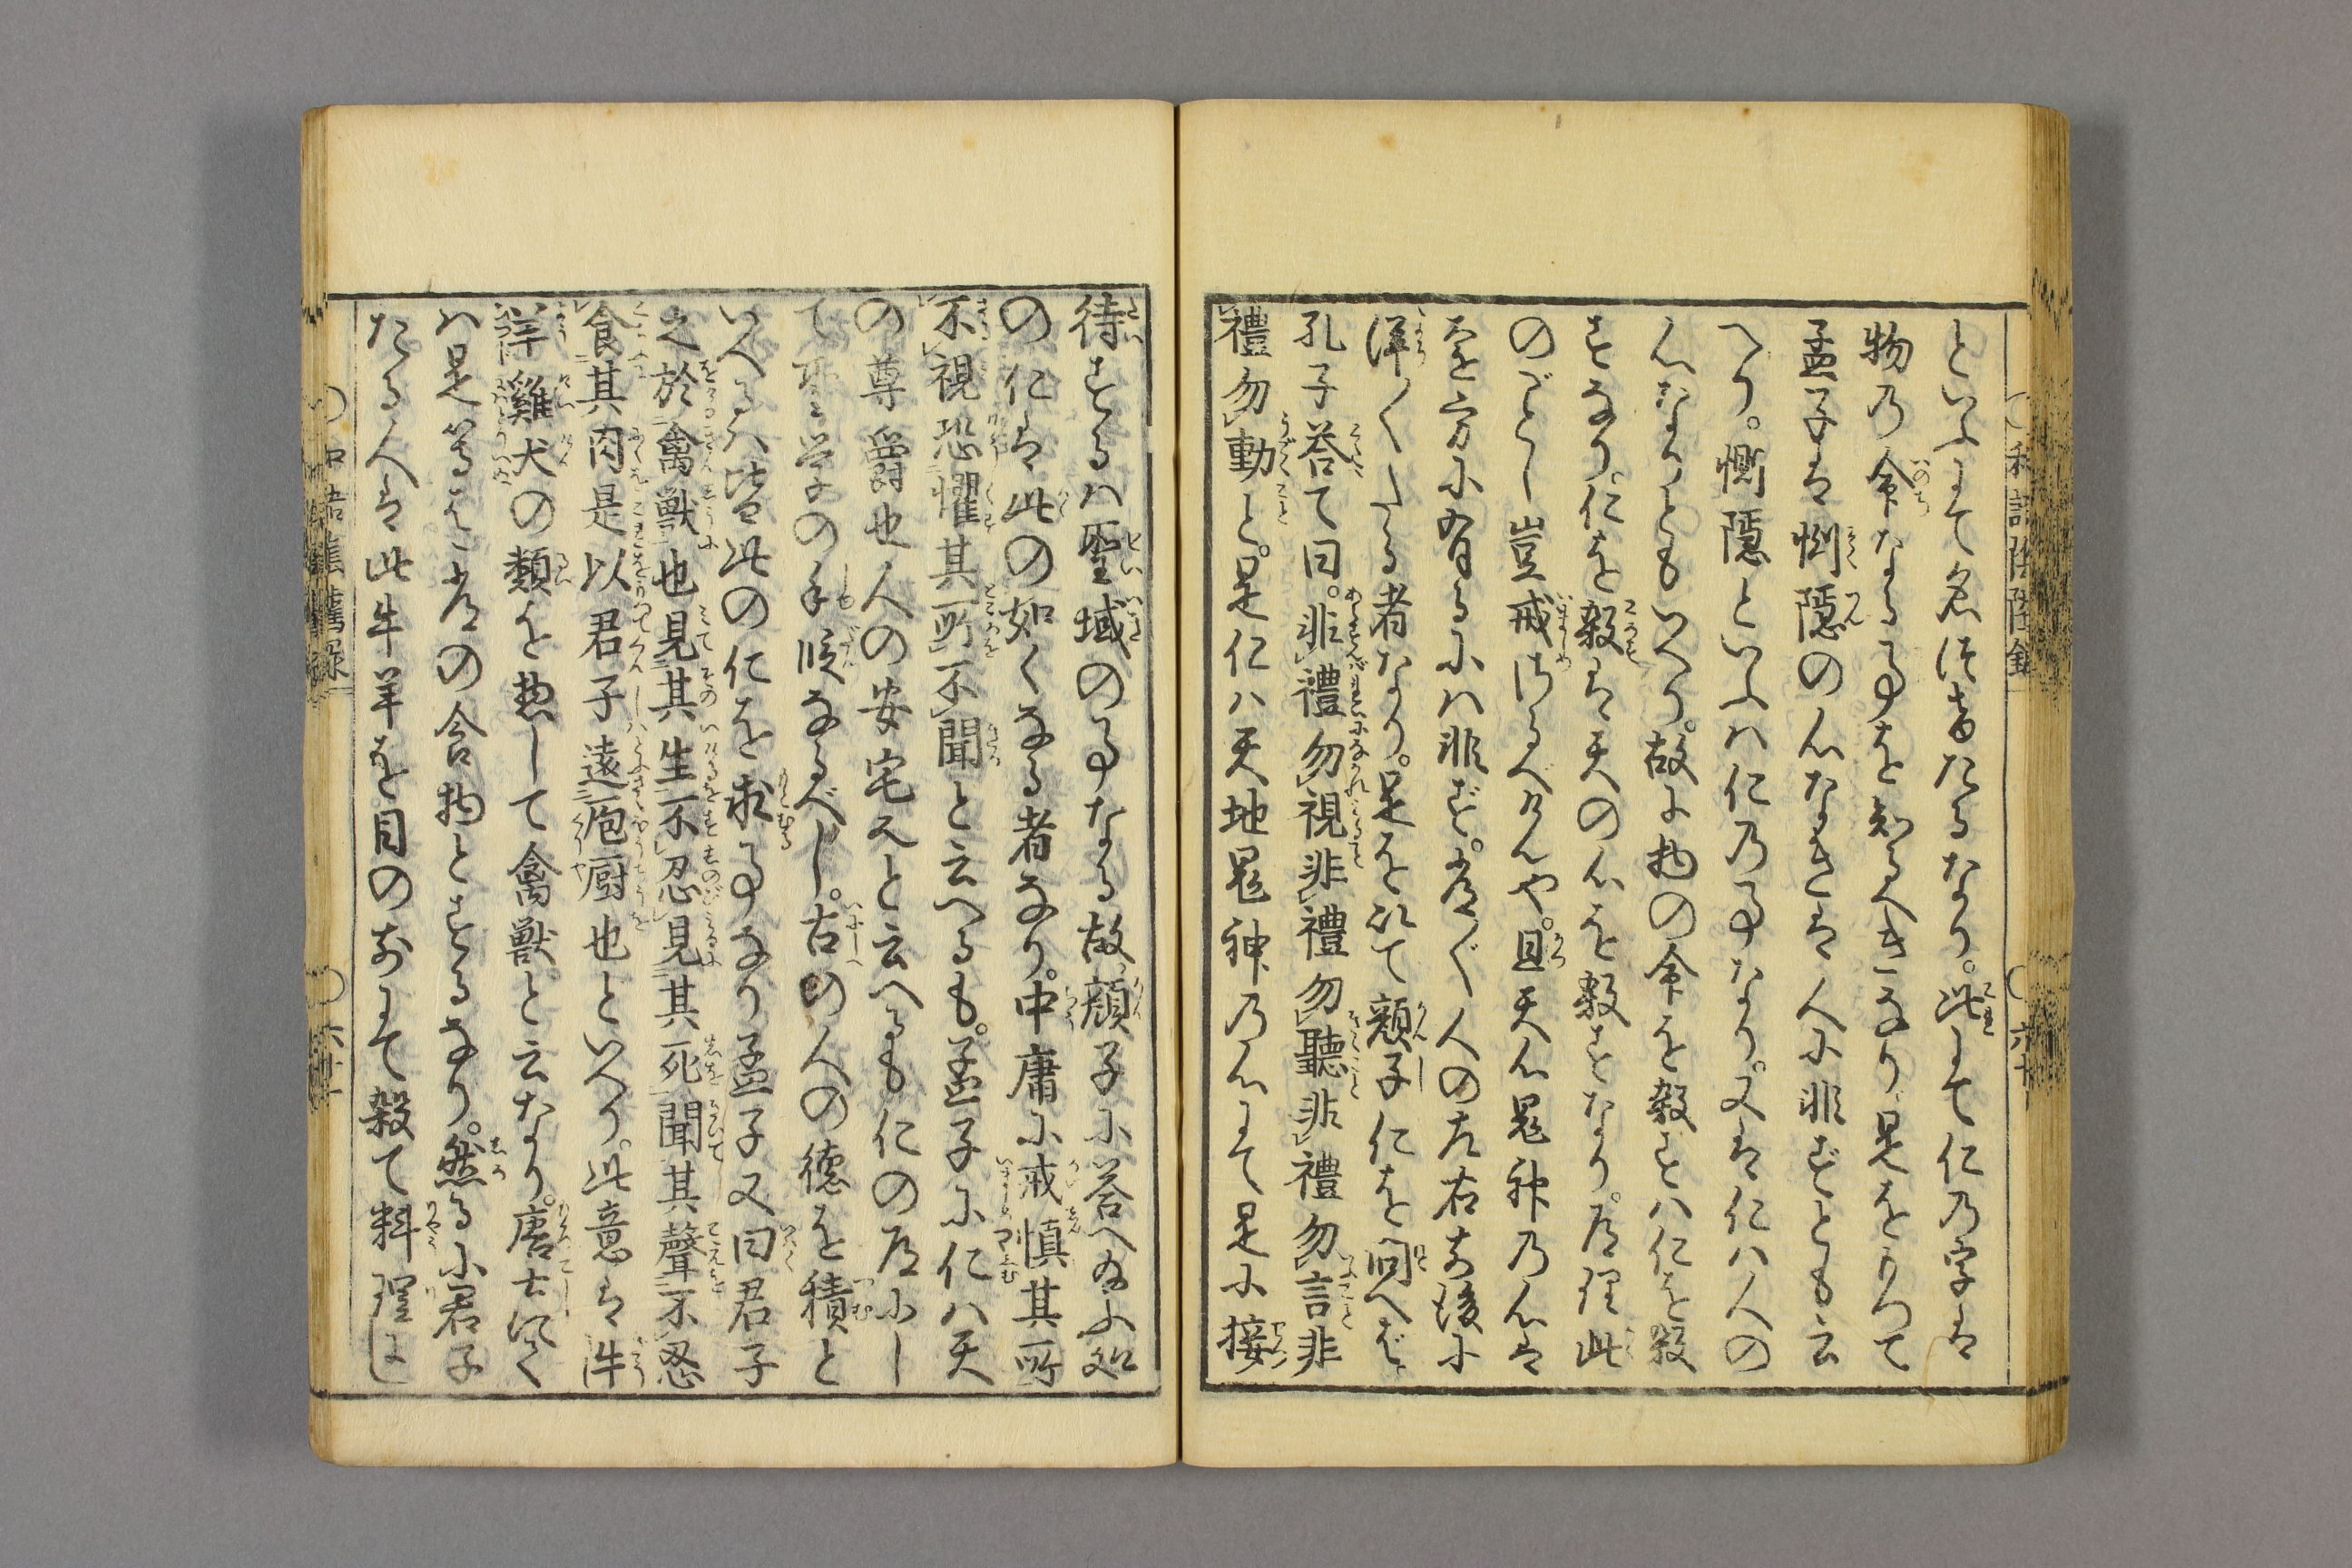 といふにて名付たるなり。此にて仁乃字は
物乃命なる事を知るへきなり是をもつて
孟子は惻隠の心なきは人に非ずとも云
へり。惻隠といふハ仁乃事なり。又は仁ハ人の
心なりともいへり。故に物の命を殺すハ仁を殺
すなり。仁を殺すは天の心を殺すとなり。道理此
のごとし豈戒しめざるべけんや。且天心鬼神乃心は
遠方に有るにハ非ず。道々人の左右前後に
洋々たる者なり。是を以て顔子仁を問へば
孔子荅て曰。非禮勿視非禮勿聽非禮勿言非
禮勿動と。是仁ハ天地鬼神乃心にて是に接
待するハ聖域の事なる故顔子に荅へ給ふ処
の仁は此の如くなる者なり。中庸に戒慎其所
不視恐懼其所不聞と云へるも。孟子に仁ハ天
の尊爵也人の安宅又と云へるも仁の道にし
て聖学の手段なるべし。古の人の徳を積と
いへるハ皆此の仁を求る事なり孟子又曰君子
之於禽獣也見其生不忍見其死聞其聲不忍
食其肉是以君子遠庖厨也といへり。此意は牛
羊雞犬の類を惣して禽獣と云なり。唐土にて
ハ是等を常の食物とするなり。然るに君子
たる人は此牛羊を目の前にて殺て料理に